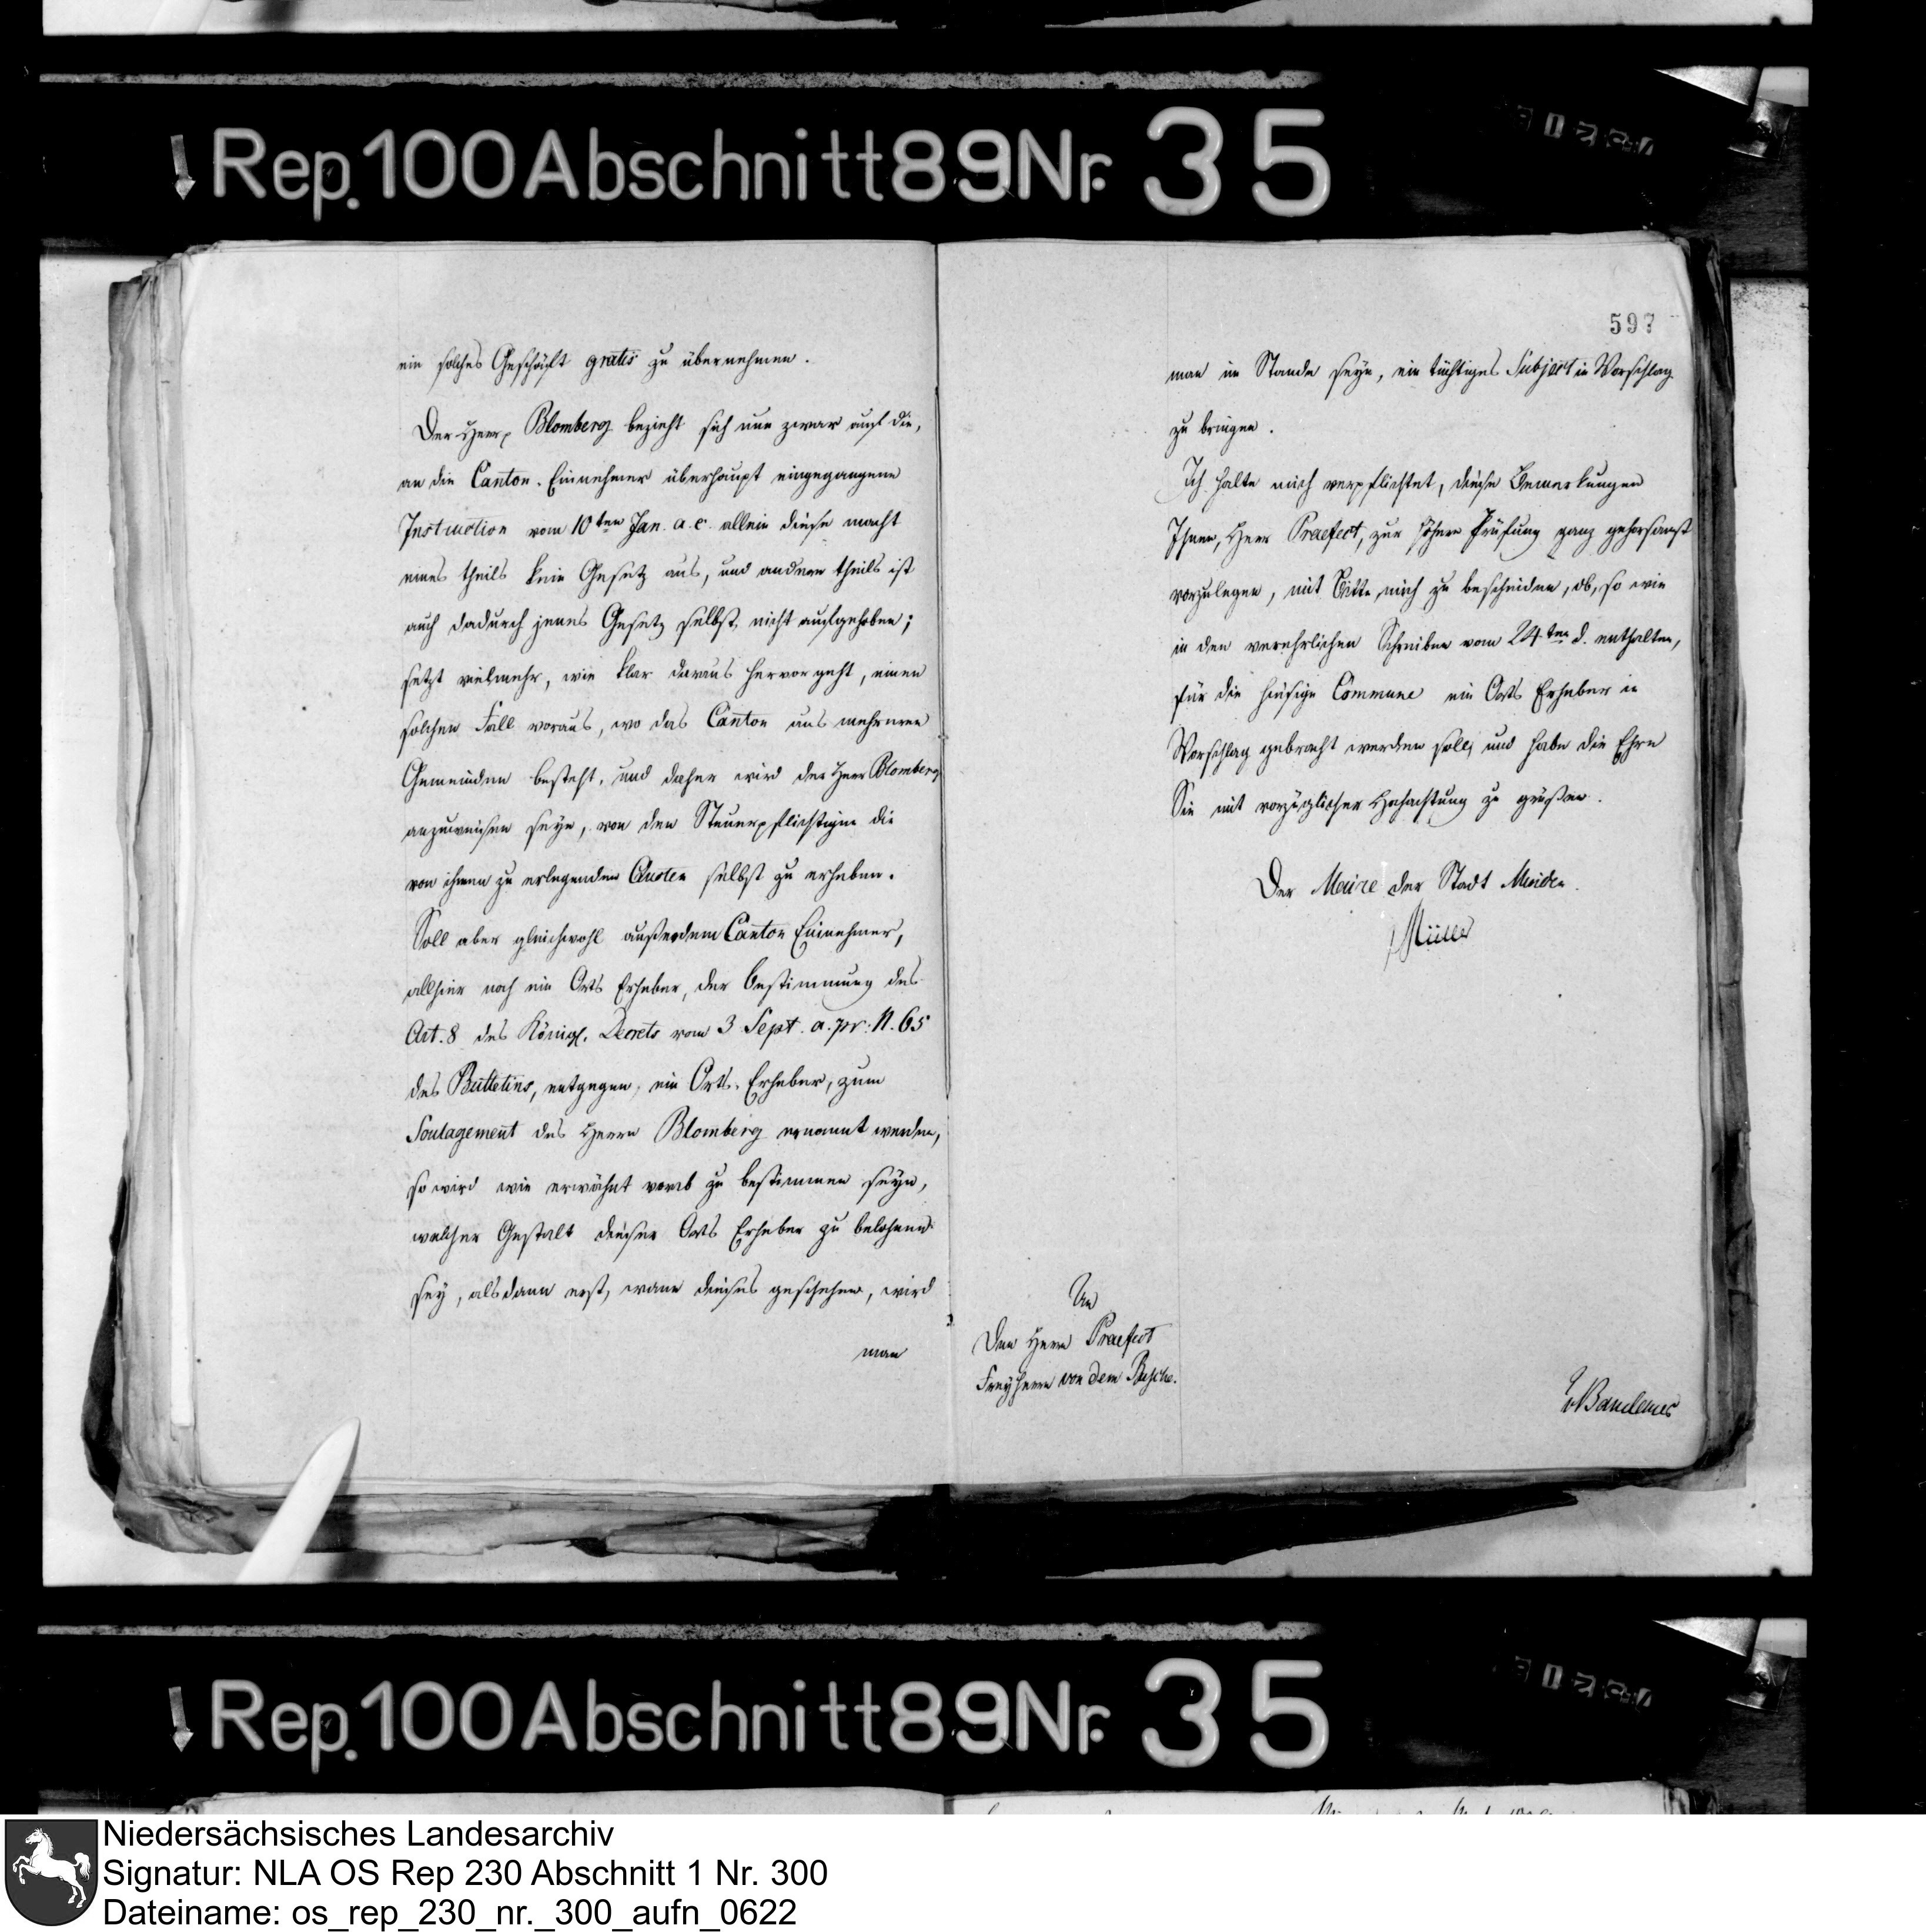 Rep.100Abschnitt89Nr. 35
ein solches Geschäft gratis zu übernehmen.
Der Herr Blomberg bezieht sich nun zwar auf die,
an die Canton-Einnehmer überhaupt eingegangene
Instruction vom 10ten Jan. a. c. allein diese macht
eines theils kein Gesetz aus, und andern theils ist
auch dadurch jenes Gesetz selbst nicht aufgehoben;
setzt vielmehr, wie klar daraus hervorgeht, einen
solchen Fall voraus, wo das Canton aus mehreren
Gemeinden besteht, und daher wird der Herr Blomberg
anzuweisen seyn, von den Steuerpflichtigen die
von ihnen zu erlegenden Quoten selbst zu erheben.
Soll aber gleichwohl außerdem Canton Einnehmer,
allhier noch ein Orts Erheber, der Bestimmung des
Art. 8 des Königl. Decrets vom 3 Sept. a. pr. N. 65
des Bulletins, entgegen, ein Orts-Erheber, zum
Soulagement des Herrn Blomberg ernannt werden,
so wird wie erwähnt vorab zu bestimmen seyn,
welcher Gestalt dieser Orts Erheber zu belohnen
sey, alsdann erst, wann dieses geschehen, wird
man
597
man im Stande seyn, ein tüchtiges Subject in Vorschlag
zu bringen.
Ich halte mich verpflichtet, diese Bemerkungen
Ihnen, Herr Praefect, zur höhern Prüfung ganz gehorsamst
vorzulegen, mit Bitte mich zu bescheiden, ob, so wie
in den verehrlichen Schreiben vom 24ten d. enthalten,
für die hiesige Commune ein Orts Erheber in
Vorschlag gebracht werden soll, und habe die Ehre
Sie mit vorzüglicher Hochachtung zu grüßen.
Der Maire der Stadt Minden.
Müller
An
Den Herrn Praefect
Freyherrn von dem Bussche.
Rep.100Abschnitt89Nr. 35
Niedersächsisches Landesarchiv
Signatur: NLA OS Rep 230 Abschnitt 1 Nr. 300
Dateiname: os_rep_230_nr._300_aufn_0622